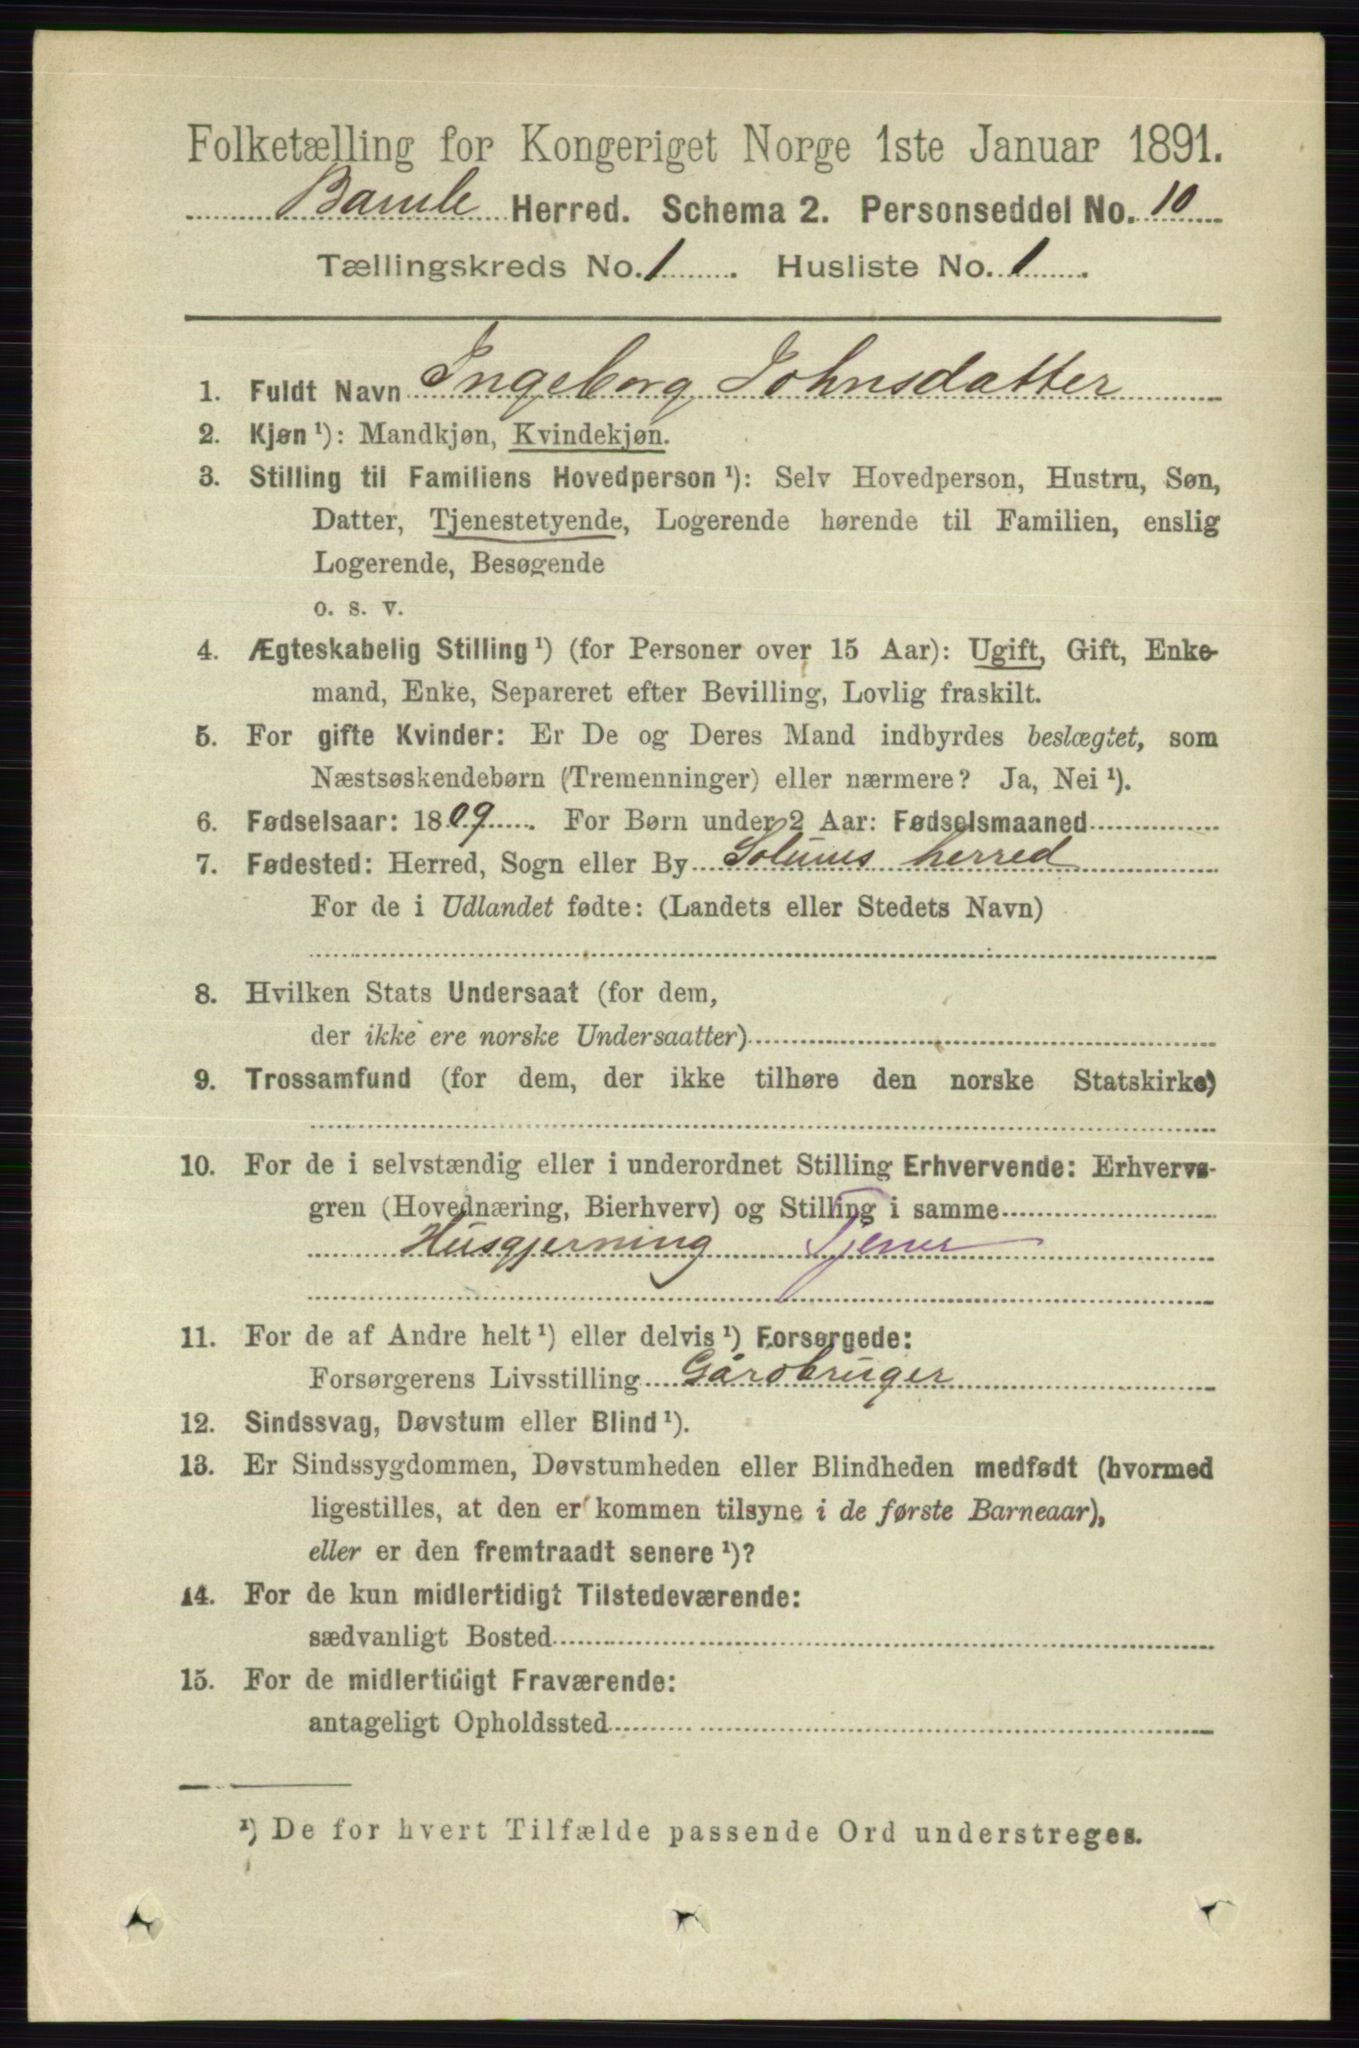 Folketælling for Kongeriget Norge 1ste Januar 1891.
Bamle Herred. Schema 2. Personseddel No. 10
Tællingskreds No. 1. Husliste No. 1.
1. Fuldt Navn Ingeborg Johnsdatter
2. Kjøn ¹): Mandkjøn, Kvindekjøn.
3. Stilling til Familiens Hovedperson ¹): Selv Hovedperson, Hustru, Søn,
Datter, Tjenestetyende, Logerende hørende til Familien, enslig
Logerende, Besøgende
o. s. v.
4. Ægteskabelig Stilling ¹) (for Personer over 15 Aar): Ugift, Gift, Enke-
mand, Enke, Separeret efter Bevilling, Lovlig fraskilt.
5. For gifte Kvinder: Er De og Deres Mand indbyrdes beslægtet, som
Næstsøskendebørn (Tremenninger) eller nærmere? Ja, Nei ¹).
6. Fødselsaar: 1809. For Børn under 2 Aar: Fødselsmaaned
7. Fødested: Herred, Sogn eller By Solums herred
For de i Udlandet fødte: (Landets eller Stedets Navn)
8. Hvilken Stats Undersaat (for dem,
der ikke ere norske Undersaatter)
9. Trossamfund (for dem, der ikke tilhøre den norske Statskirke)
10. For de i selvstændig eller i underordnet Stilling Erhvervende: Erhvervs-
gren (Hovednæring, Bierhverv) og Stilling i samme
Husgjerning Tjener
11. For de af Andre helt ¹) eller delvis ¹) Forsørgede:
Forsørgerens Livsstilling Gårdbruger
12. Sindssvag, Døvstum eller Blind ¹).
13. Er Sindssygdommen, Døvstumheden eller Blindheden medfødt (hvormed
ligestilles, at den er kommen tilsyne i de første Barneaar),
eller er den fremtraadt senere ¹)?
14. For de kun midlertidigt Tilstedeværende:
sædvanligt Bosted
15. For de midlertidigt Fraværende:
antageligt Opholdssted
¹) De for hvert Tilfælde passende Ord understreges.